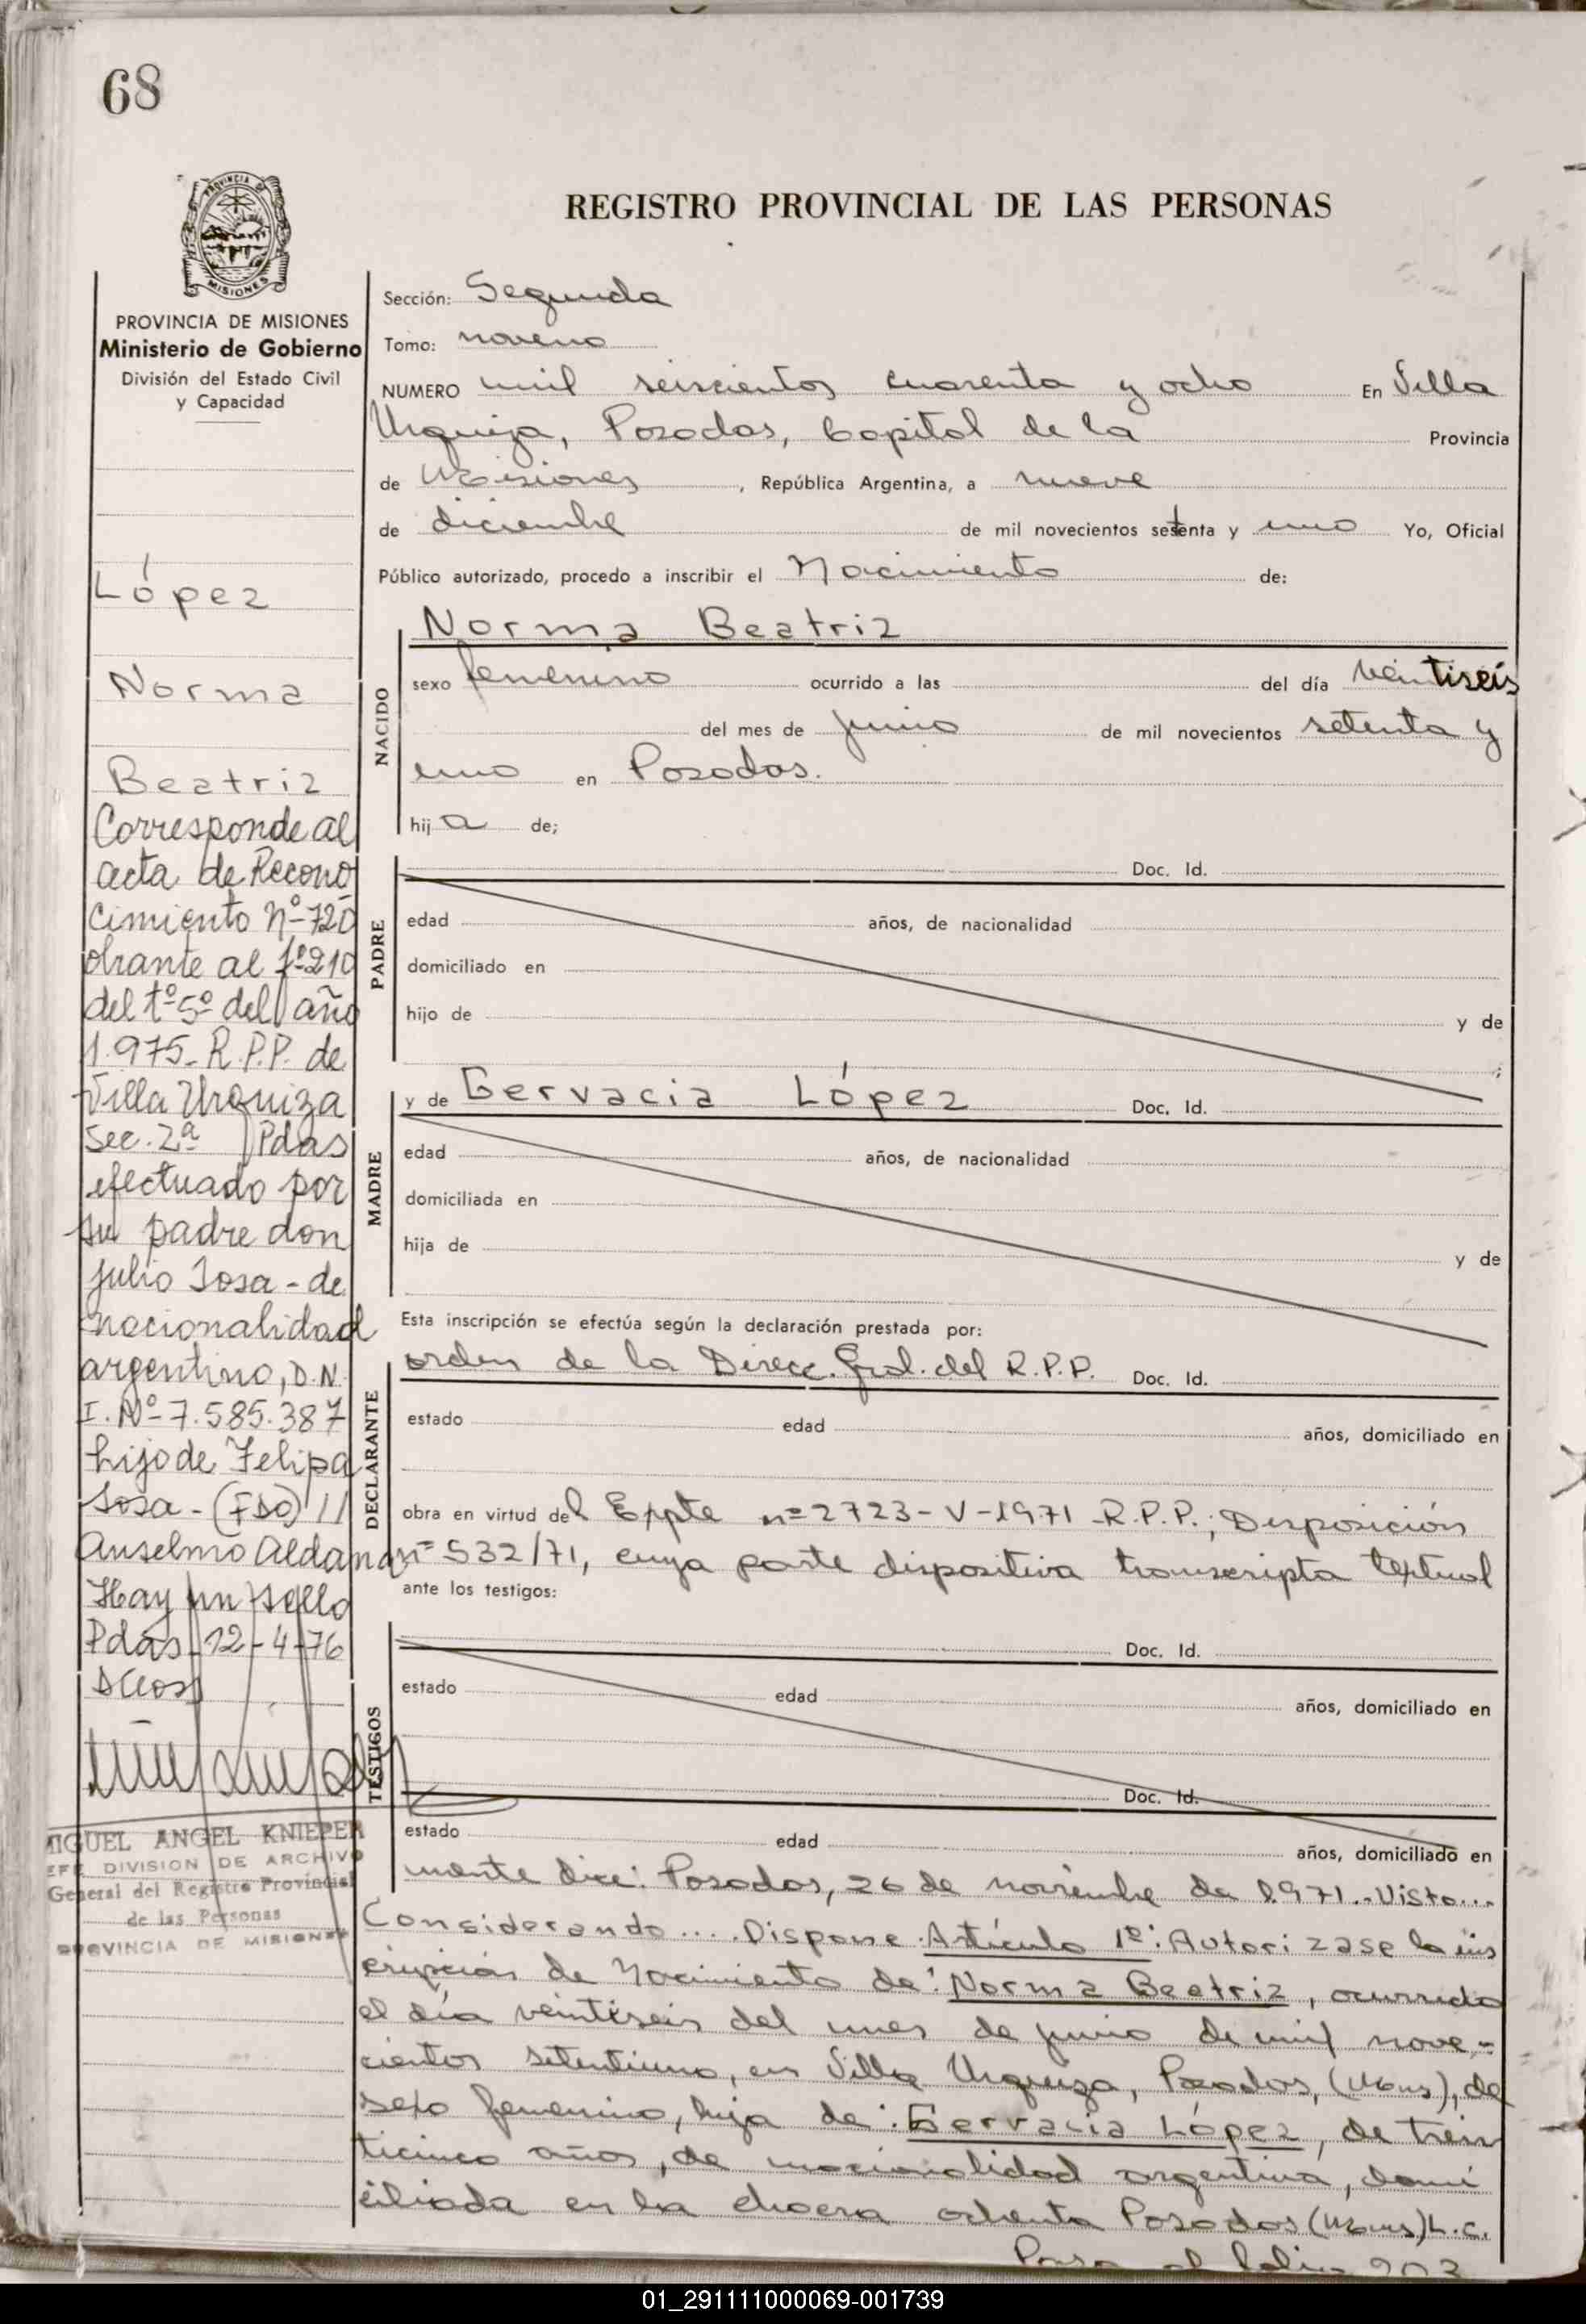 68
PROVINCIA DE
MISIONES
REGISTRO PROVINCIAL DE LAS PERSONAS
PROVINCIA DE MISIONES
Ministerio de Gobierno
División del Estado Civil
y Capacidad
López
Norma
Beatriz
Corresponde al
acta de Recono
cimiento Nº 720
obrante al fº 210
del tº 5º del año
1.975- R.P.P. de
Villa Urquiza
Sec. 2ª Pdas
efectuado por
su padre don
Julio Sosa - de
nacionalidad
argentino, D.N.
I. Nº 7.585.387
hijo de Felipa
Sosa - (FDO) //
Anselmo Aldana
Hay un sello
Pdas. 12-4-76
MIGUEL ANGEL KNIEPER
JEFE DIVISION DE ARCHIVO
General del Registro Provincial
de las Personas
PROVINCIA DE MISIONES
Sección: Segunda
Tomo: noveno
NUMERO mil seiscientos cuarenta y ocho En Villa
Urquiza, Posadas, Capital de la Provincia
de Misiones, República Argentina, a nueve
de diciembre de mil novecientos setenta y uno Yo, Oficial
Público autorizado, procedo a inscribir el Nacimiento de:
NACIDO
Norma Beatriz
sexo femenino ocurrido a las del día veintiseis
del mes de junio de mil novecientos setenta y
uno en Posadas.
hija de;
PADRE
Doc. Id.
edad años, de nacionalidad
domiciliado en
hijo de y de
;
MADRE
y de Gervacia López Doc. Id.
edad años, de nacionalidad
domiciliada en
hija de y de
Esta inscripción se efectúa según la declaración prestada por:
DECLARANTE
orden de la Direcc. Gral. del R.P.P. Doc. Id.
estado edad años, domiciliado en
obra en virtud del Expte nº 2723-V-1971 R.P.P.; Disposición
nº 532/71, cuya parte dispositiva transcripta textual
ante los testigos:
TESTIGOS
Doc. Id.
estado edad años, domiciliado en
Doc. Id.
estado edad años, domiciliado en
mente dice: Posadas, 26 de noviembre de 1971.-Visto...
Considerando.... Dispone Artículo 1º: Autorizase la ins
cripción de Nacimiento de: Norma Beatriz, ocurrido
el día veintiseis del mes de junio de mil nove-
cientos setentiuno, en Villa Urquiza, Posadas, (Mnes), de
sexo femenino, hija de: Gervacia López, de trein
ticinco años, de nacionalidad argentina, domi
ciliada en la chacra ochenta Posadas (Mnes) L.C.
Pasa al folio 203
01_291111000069-001739